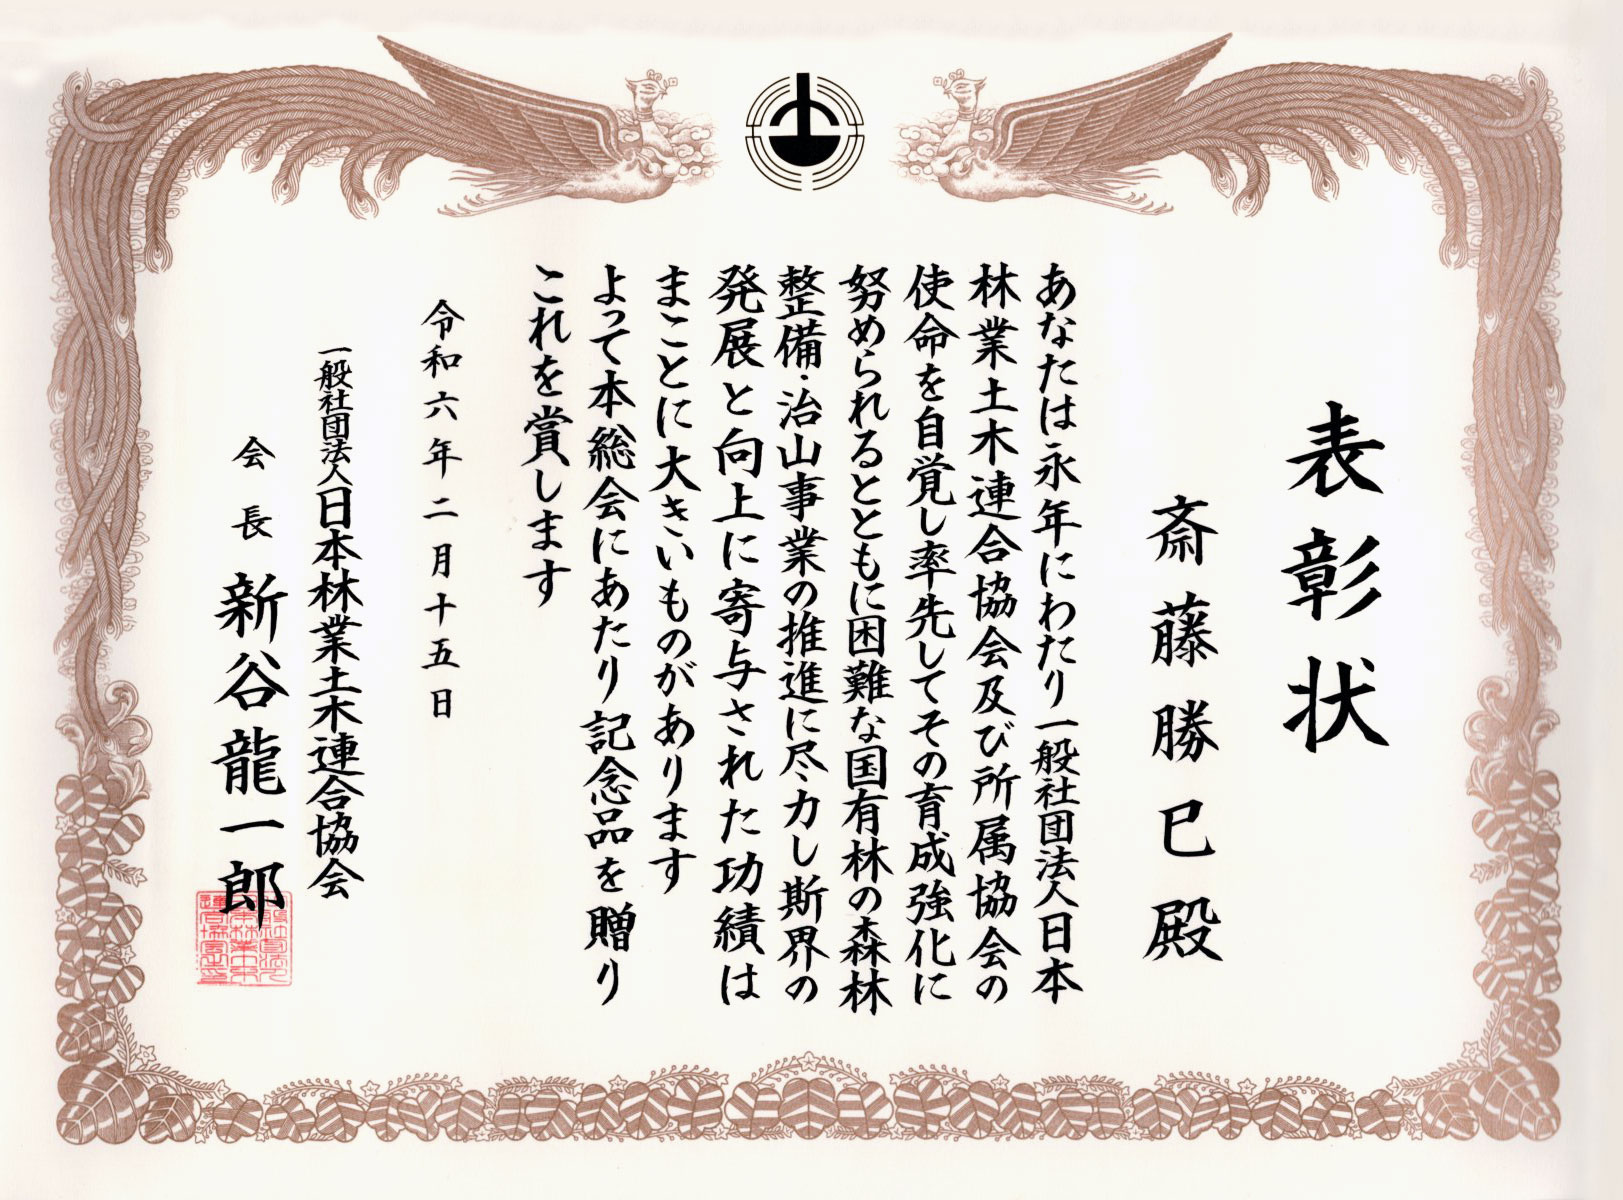 表彰状
斎藤勝巳殿
あなたは永年にわたり一般社団法人日本
林業土木連合協会及び所属協会の
使命を自覚し率先してその育成強化に
努められるとともに困難な国有林の森林
整備・治山事業の推進に尽力し斯界の
発展と向上に寄与された功績は
まことに大きいものがあります
よって本総会にあたり記念品を贈り
これを賞します
令和六年二月十五日
一般社団法人日本林業土木連合協会
会長 新谷龍一郎